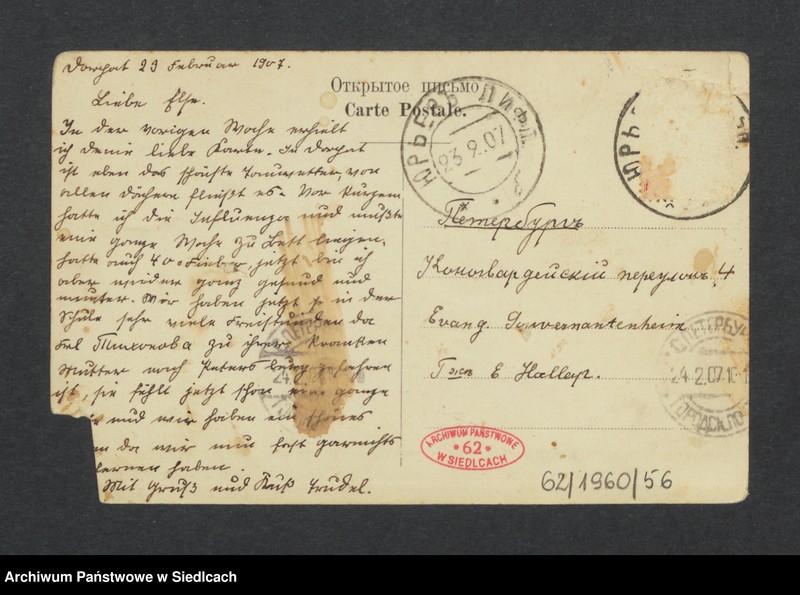 Dorpat 23 Februar 1907.
Liebe Else.
In der vorigen Woche erhielt
ich deine liebe Karte. In Dorpat
ist eben das schönste Tauwetter, von
allen Dächern fließt es. Vor kurzem
hatte ich die Influenza und mußte
eine ganze Woche zu Bett liegen.
hatte auch 40° Fieber jetzt bin ich
aber wieder ganz gesund und
munter. Wir haben jetzt in der
Schule sehr viele Freistunden da
Frl Тихонова zu ihrer kranken
Mutter nach Petersburg gefahren
ist, sie fehlt jetzt schon eine ganze
und wir haben ein schönes
da wir nun fast garnichts
lernen haben.
Mit Gruß und Kuß Trudel.
Открытое письмо
Carte Postale.
ЮРЬЕВЪ ЛИФЛ.
23.2.07
ЮРЬ
Петербургъ
Конногвардейскій переулокъ 4
Evang. Gouvernantenheim
Гжѣ E. Haller.
С.ПЕТЕРБУ
24.2.07
ARCHIWUM PAŃSTWOWE
* 62 *
W SIEDLCACH
62/1960/56
Archiwum Państwowe w Siedlcach